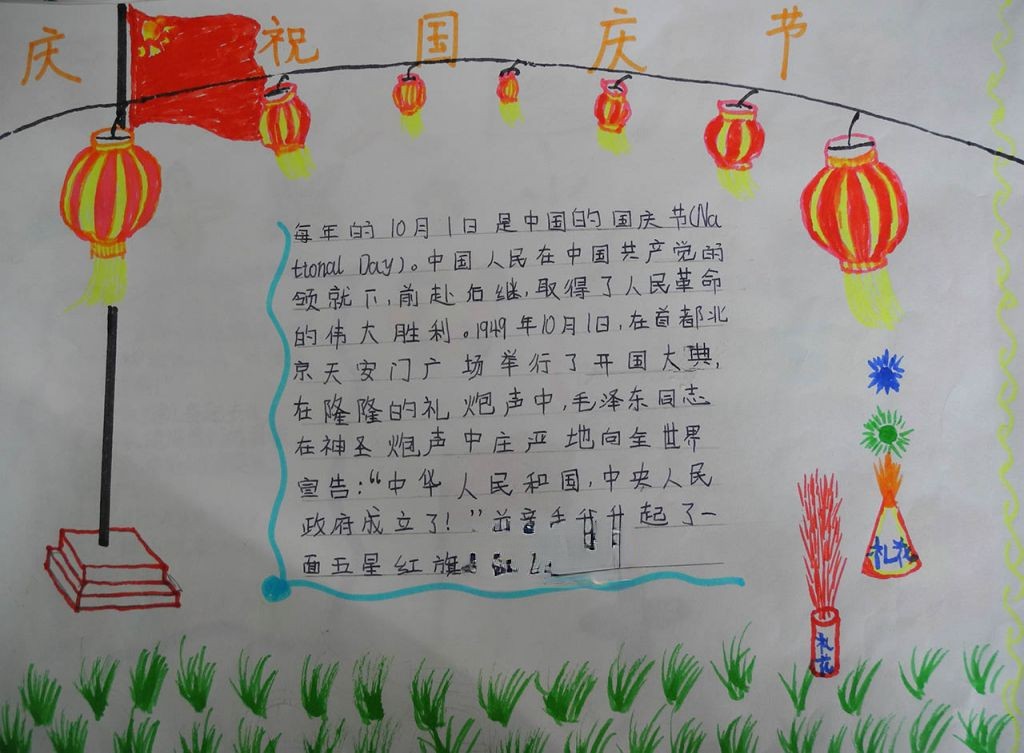 庆祝国庆节
每年的10月1日是中国的国庆节(Na
tional Day)。中国人民在中国共产党的
领就下,前赴后继,取得了人民革命
的伟大胜利。1949年10月1日,在首都北
京天安门广场举行了开国大典,
在隆隆的礼炮声中,毛泽东同志
在神圣炮声中庄严地向全世界
宣告:“中华人民和国,中央人民
政府成立了!”并
起了一
面五星红旗
礼花
礼花